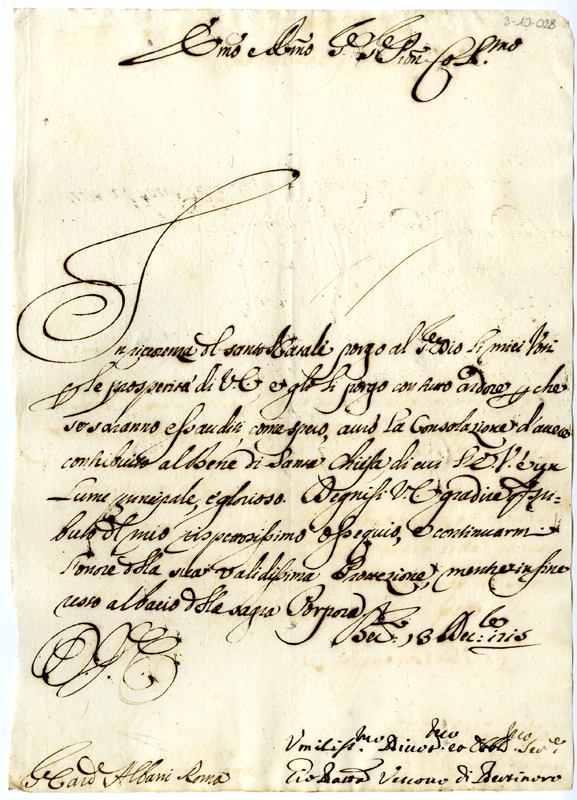 3-10-028
Em̃o e Rm̃o Sre Sre Pron̄ Colmo
In ricorrenza del santo Natale porgo al Sre Dio li miei Voti
p le prosperità di V E e glie li porgo con tutto ardore, p che
se saranno essauditi, come spero, avrò la Consolazione d'aver
contribuito al bene di Santa Chiesa di cui l'E. V. è un
Lume principale, e glorioso. Degnisi V E gradire qto tri-
buto del mio rispettosissimo ossequio, e continuarmi
l'onore della sua validissima Protezione, mentre in fine
resto al bacio della sagra Porpora
13 Decbre 1715
D. V. E.
Umilissmo Divotmo ed Obblmo Serre
Sr Card Albani Roma
Gio Batta Vescovo di Bertinoro